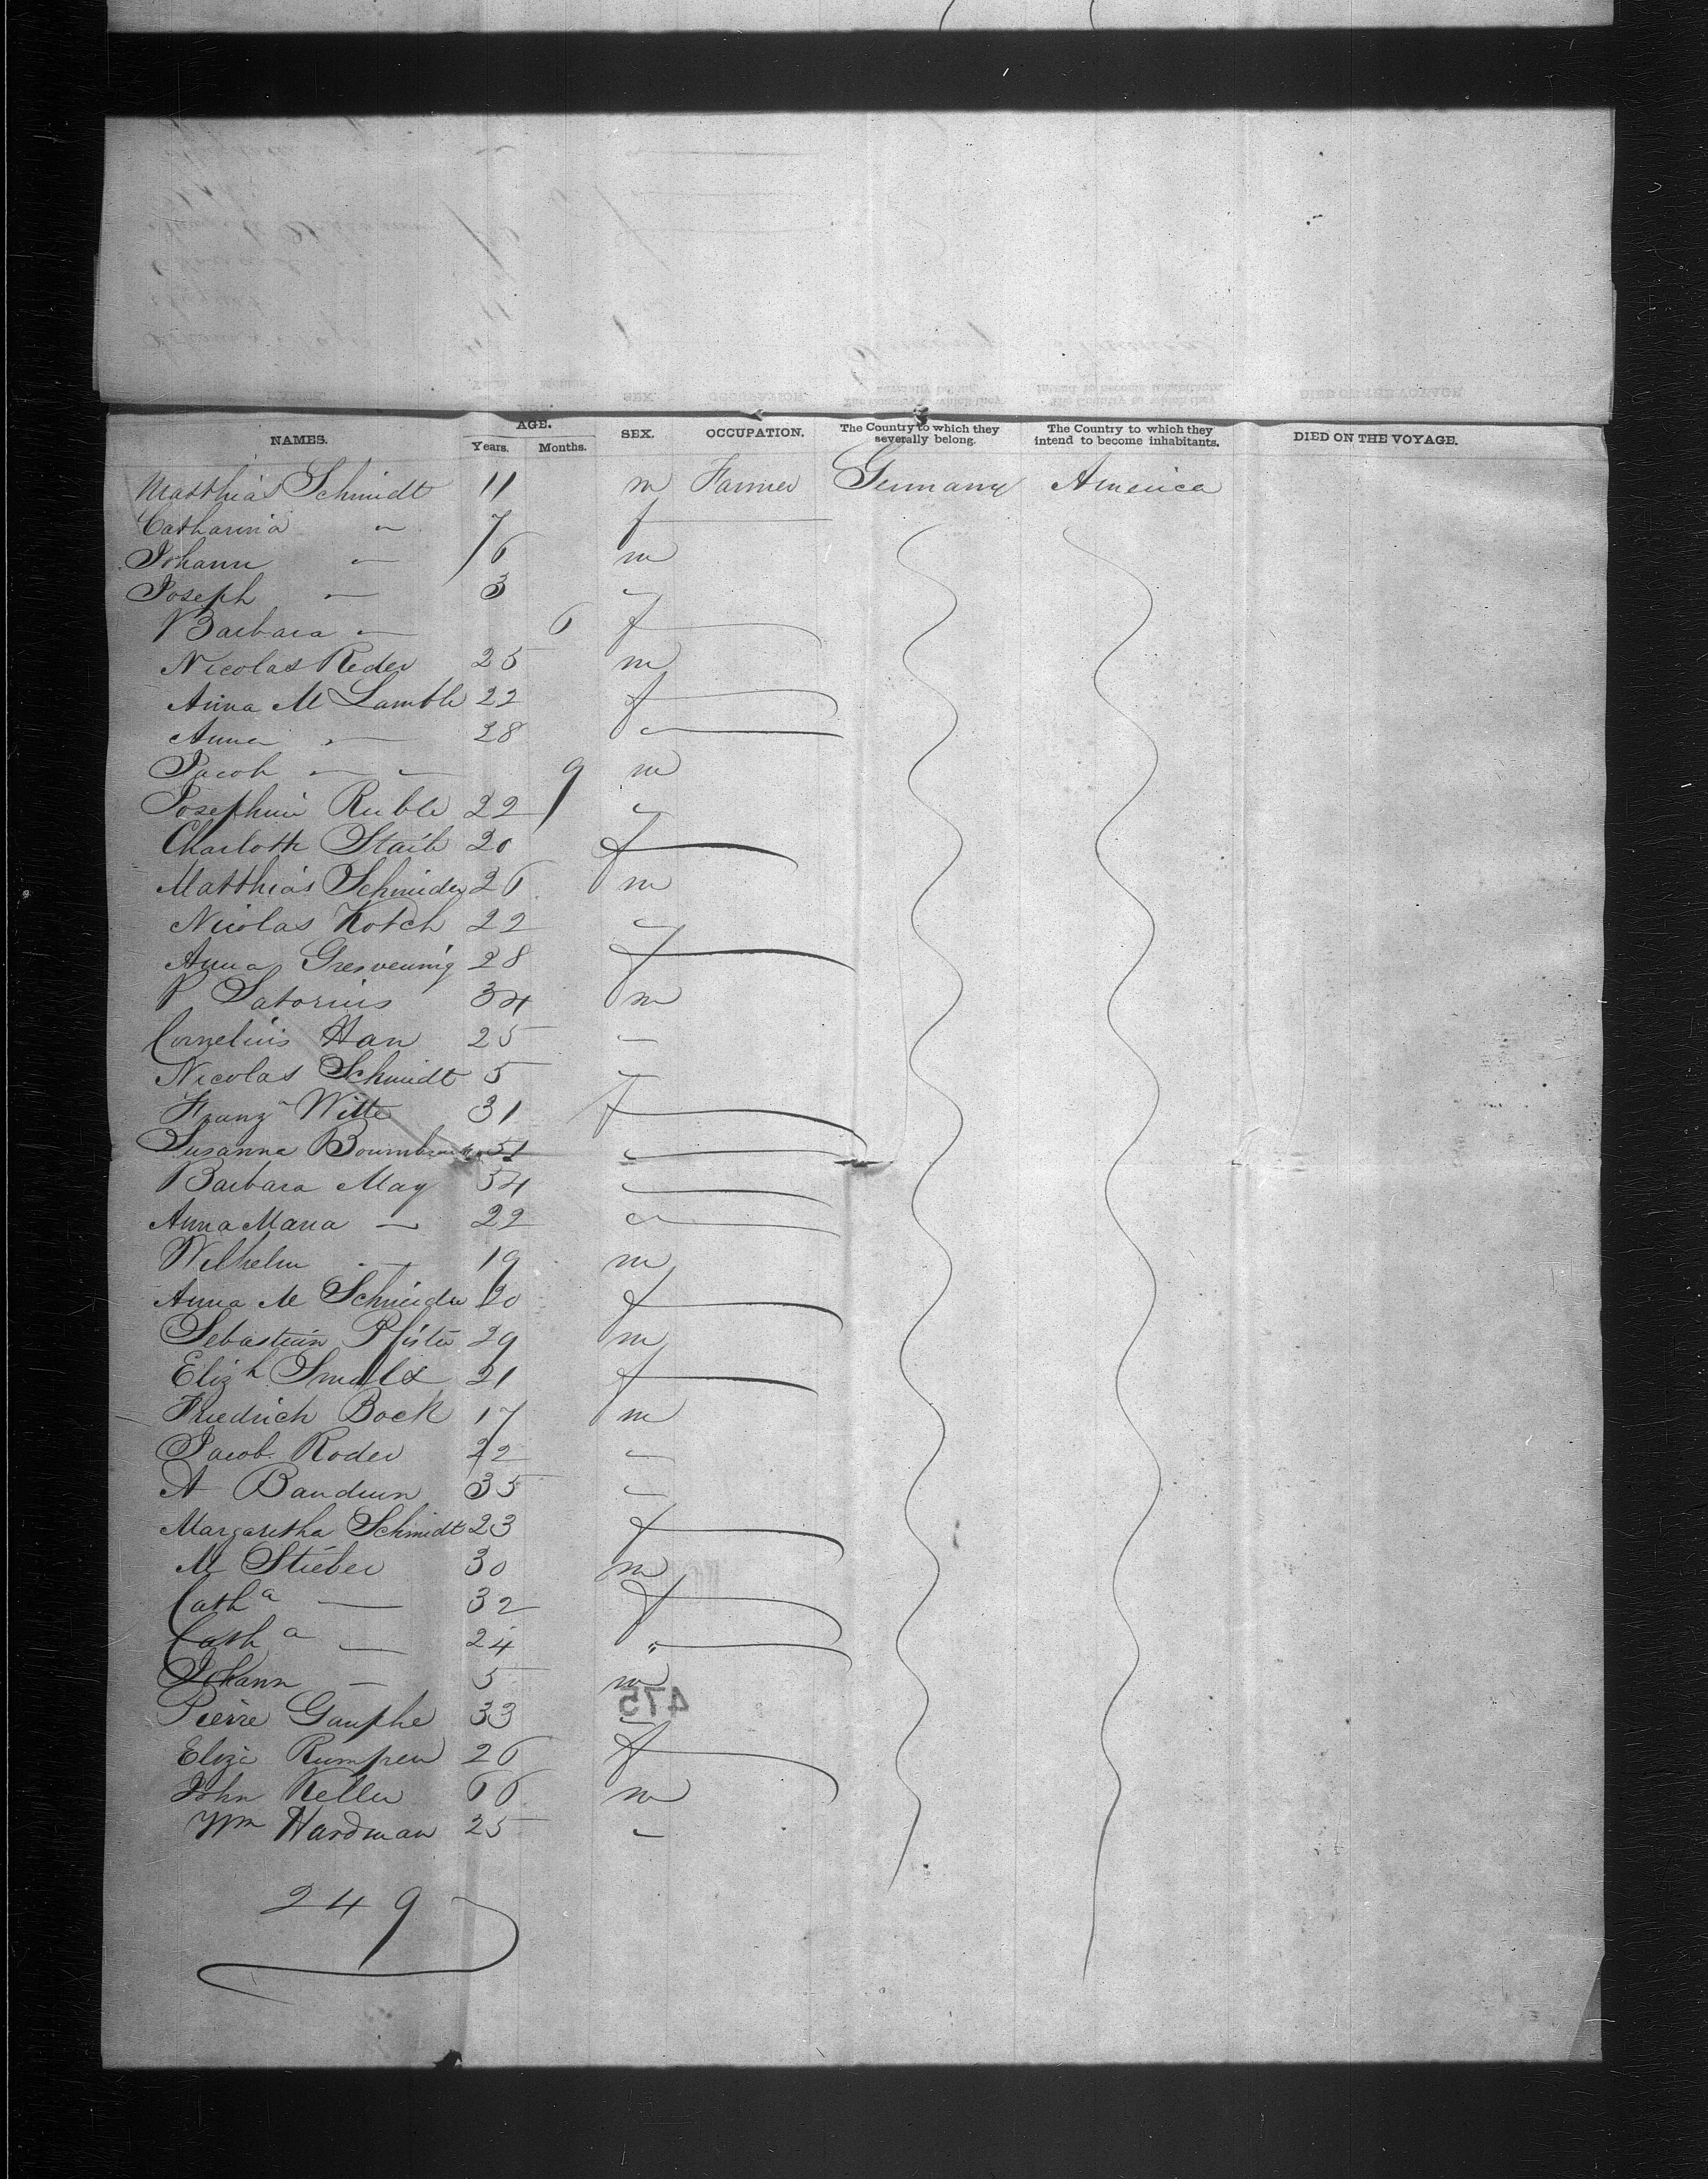 NAMES. AGE. Years. Months. SEX. OCCUPATION. The Country to which they severally belong. The Country to which they intend to become inhabitants. DIED ON THE VOYAGE.
Matthias Schmidt 11 m Farmer Germany America
Catharina " 7 f
Johann " 6 m
Joseph " 3 "
Barbara " 6 f
Nicolas Reder 25 m
Anna M Lamble 22 f
Anna " 28 "
Jacob " " 9 m
Josephine Ruble 22 "
Charloth Staib 20 f
Matthias Schneider 26 m
Nicolas Kotch 22 "
Anna 28 f
P Satorius 34 m
Cornelius Han 25 "
Nicolas Schmidt 5 "
Franz Witte 31 f
Susanna 51 "
Barbara May 54 "
Anna Maria " 22 "
Wilhelm " 19 m
Anna M Schneider 20 f
Sebastian Pfister 29 m
Eliz h 21 f
Friedrich Bock 17 m
Jacob Roder 22 "
A 35 "
Margaretha Schmidt 23 f
M Stieber 30 m
Cath a " 32 f
Cath a " 24 "
Johann " 5 m
475
Pierre Gauphe 33 "
Elize Rumpen 26 f
John Keller 66 m
Wm Hardman 25 "
249